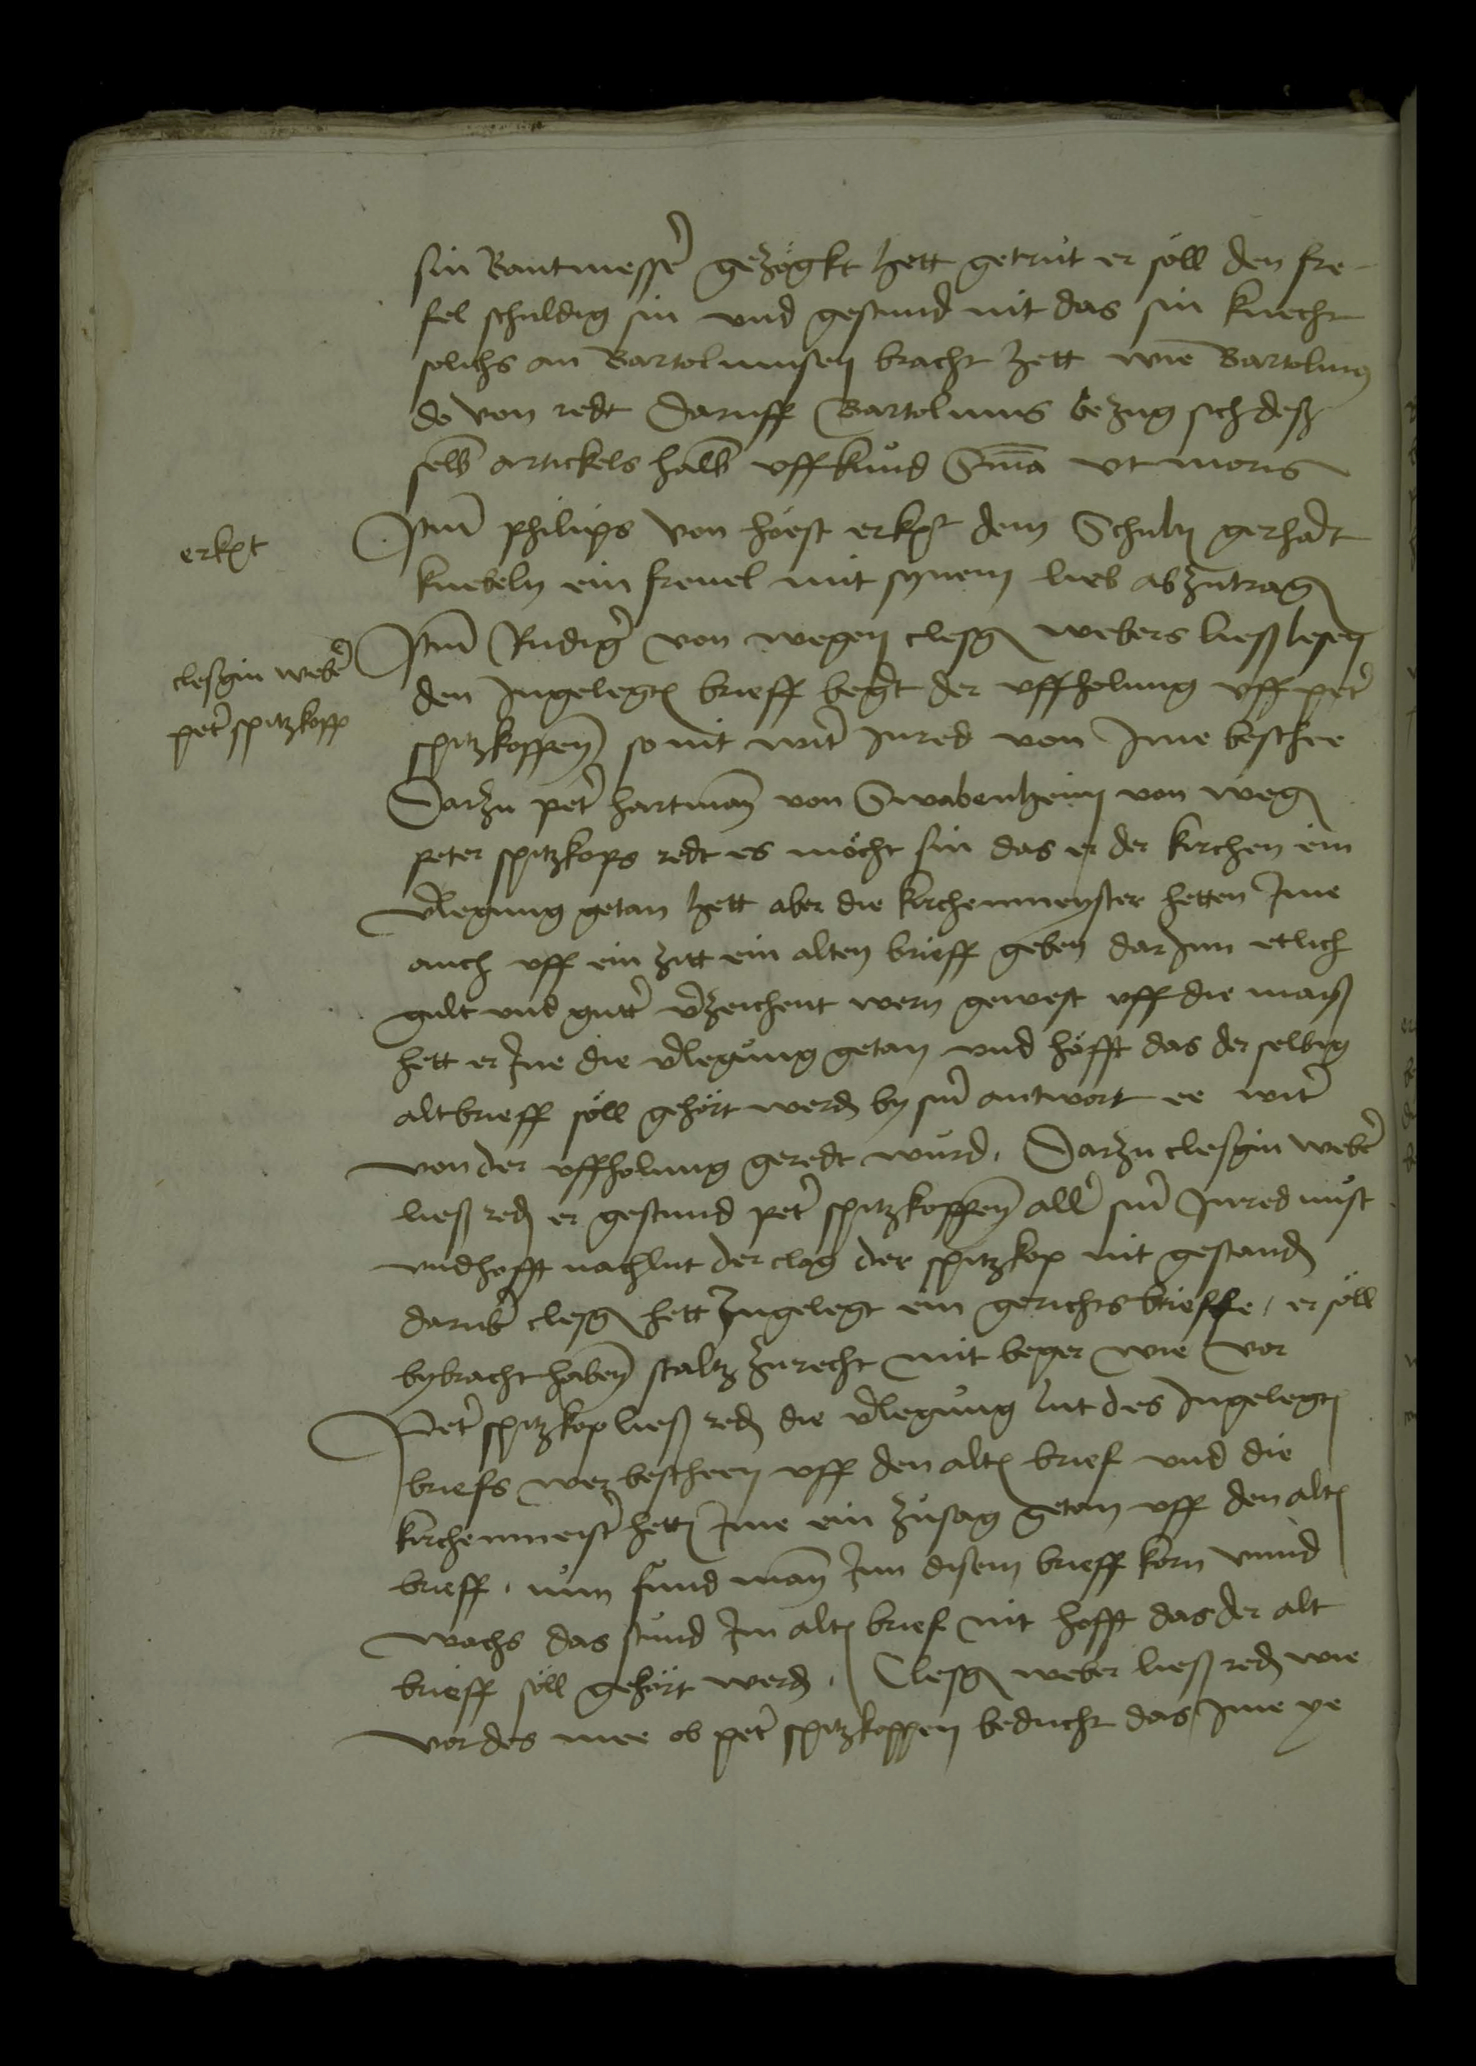 sin Bantmesser gezögkt hett getrut er söll den fre-
fel schuldig sin und gestund nit das sin knecht
solichs an Bartolmusen bracht hett wie Bartolmeß
do von redt Daruff Bartolmus bezug sich deß
selb artickels halb uff kund Sma ut moris
erkant
Item philips von höest erkant dem Schulth gerhart
knebeln ein frevel mit synem lieb abzutrag
clesgin weber
peter spitzkopp
Item Rudiger von wegen clesg webers ließ lesen
den Ingelegten brieff begert der uffholung uff peter
spitzkoppen so nit witer Inred von Ime beschee
Darzu peter hartman von Swabenheim von weg
peter spitzkops redt es möcht sin das er der kirchen ein
verlegung getan hett aber die kirchenmeyster hetten Ime
auch uff ein zitt ein alten brieff geben darInn etlich
gult und gutter verzeichent wern gewest uff die mayß
hett er Ine die verlegung getan und höfft das der selbig
alt brieff söll gehört werd by siner antwort ee witer
von der uffholung geredt wurd. Darzu clesgin weber
ließ red er gestund peter spitzkoppen aller siner Inred nust
und hofft nach lut der clag der spitzkop nit gestand
daruber clesg hett Ingelegt ein gerichts brieffe, er söll
bybracht haben staltz zu recht mit beger wie vor
Peter spitzkop ließ red die verlegung lut des Ingelegten
briefs wer bescheen uff den alten brief und die
kirchenmeister hetten Ime ein zusag getan uff den alten
brieff. nun fund man Inn disem brieff korn unnd
wachs das stund Im alten brief nit hofft das der alt
brieff söll gehört werd. Clesg weber ließ red wie
vor des mee ob peter spitzkoppen beducht das Ime ye